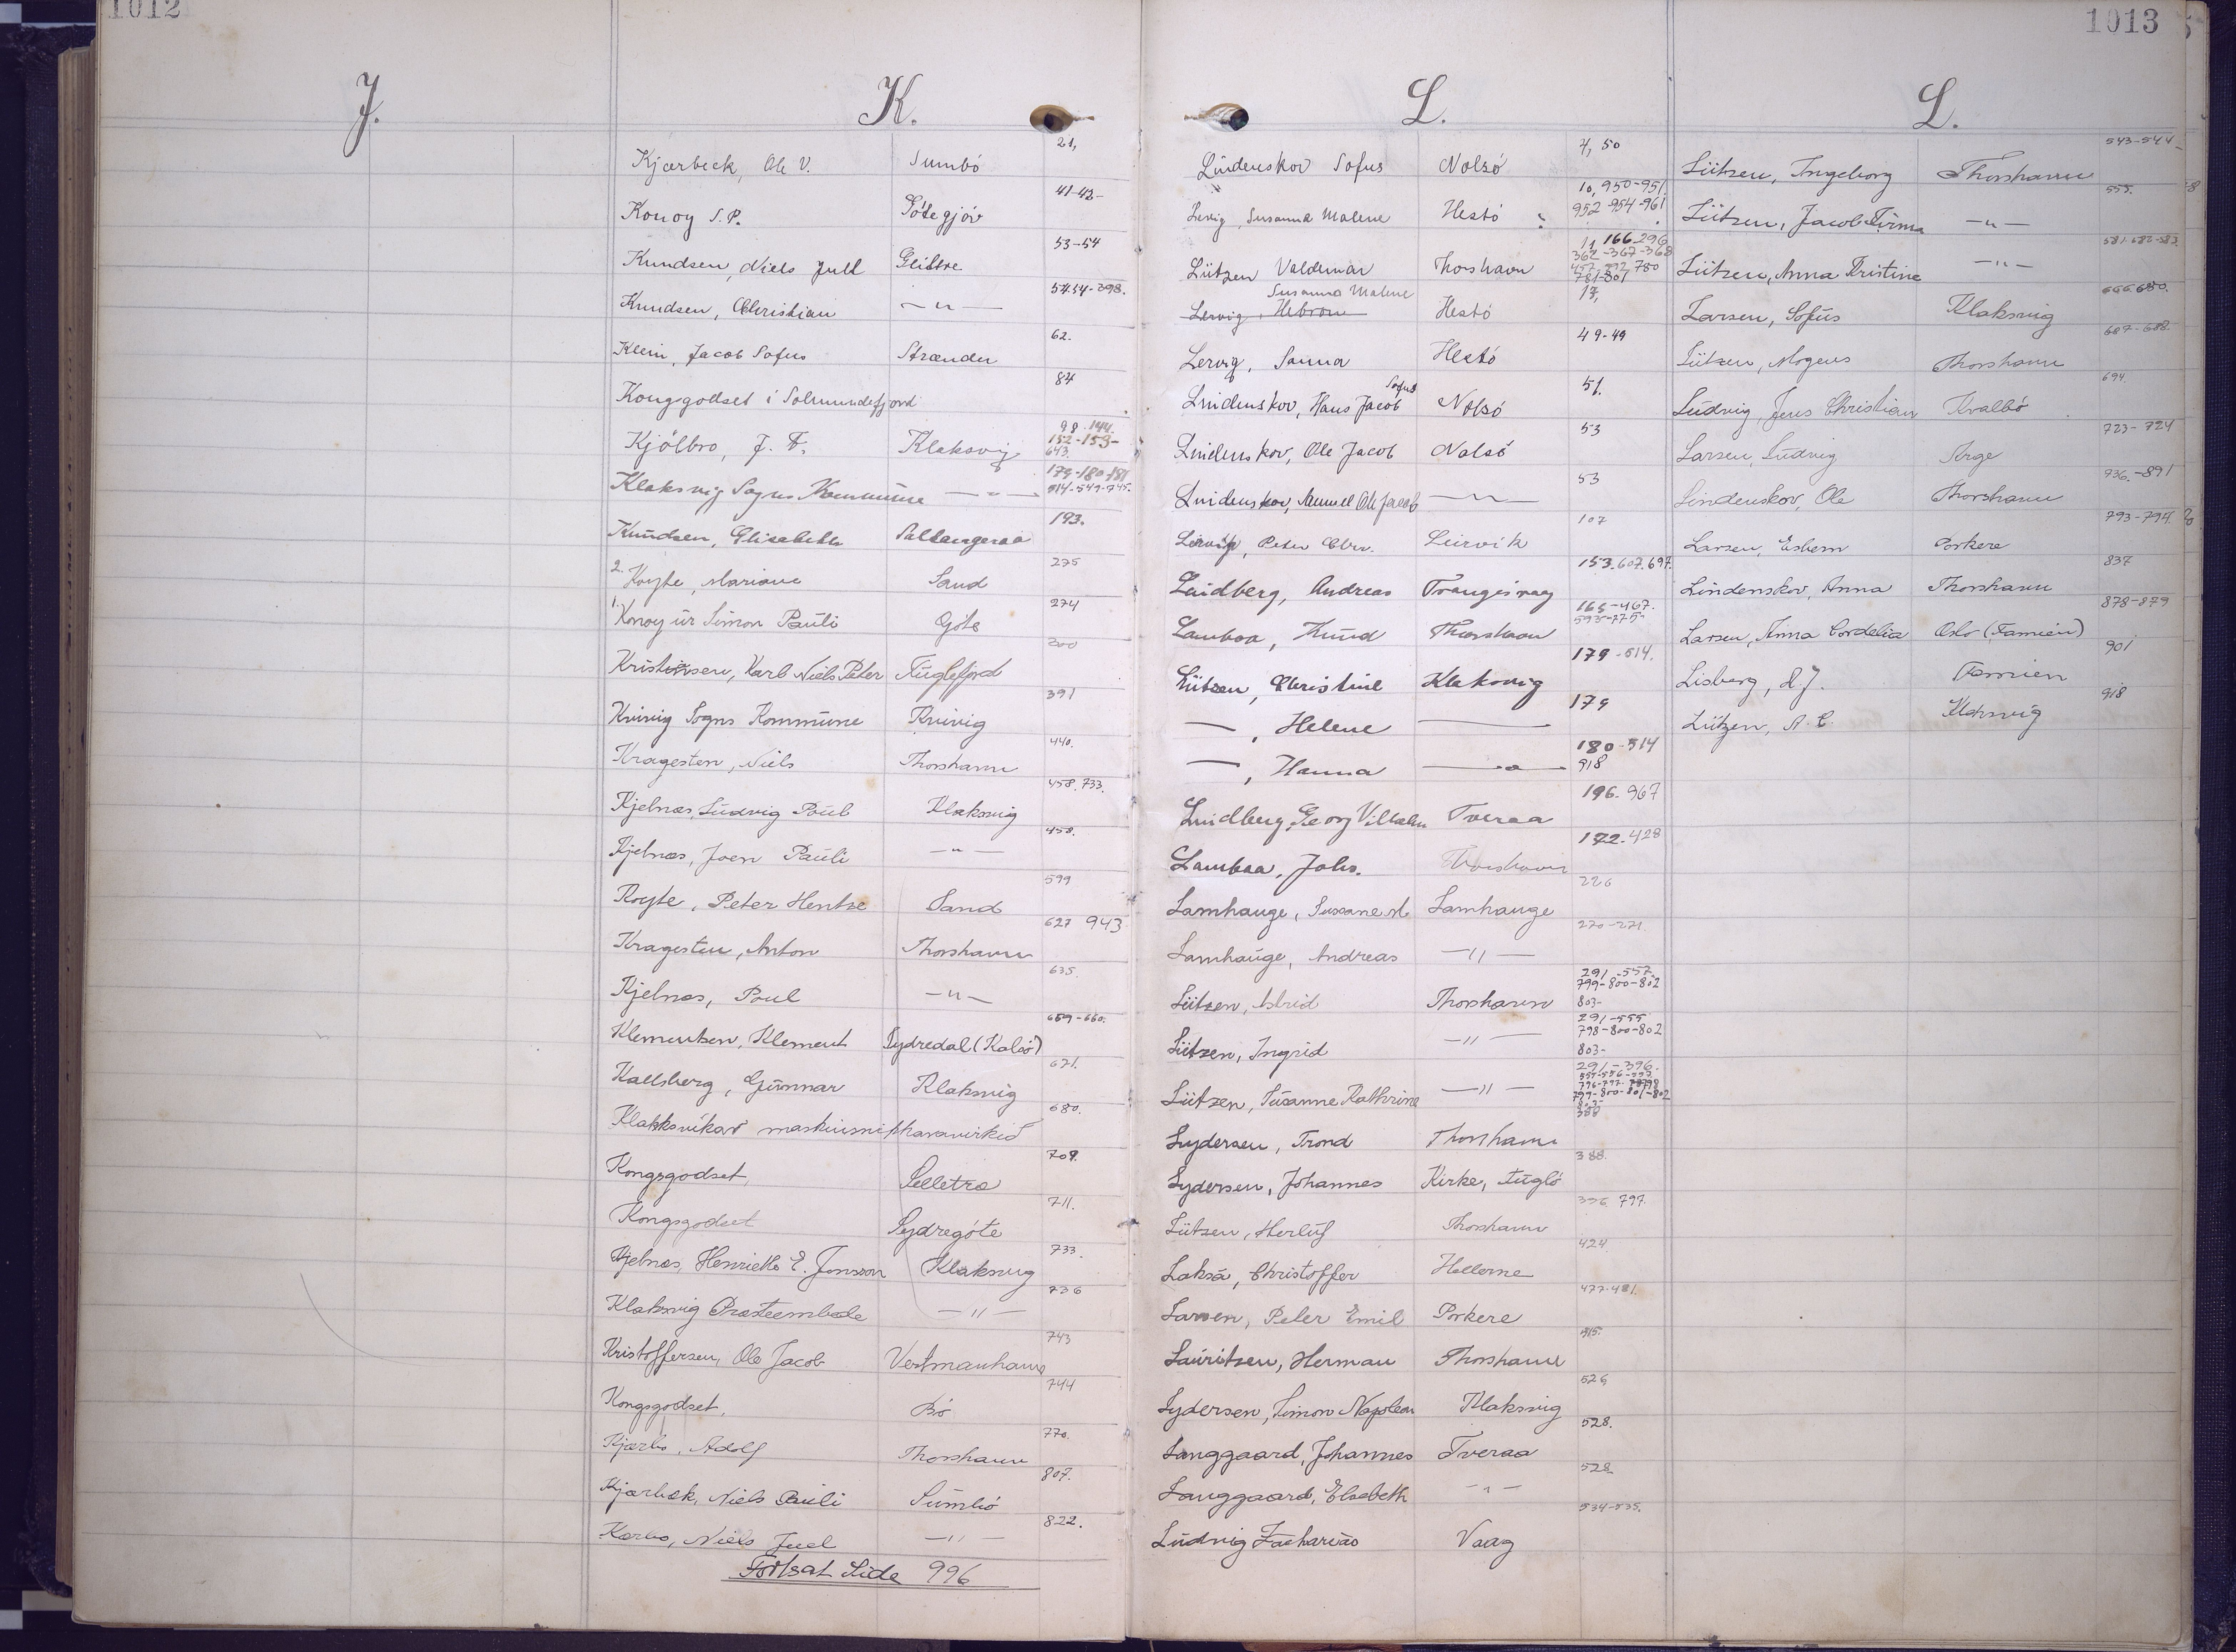 1012
J.
K.
Kjærbeck, Ole V. Sumbö 21,
Konoy S. P. Götegjóv 41-42-
Knudsen, Niels Juul Glibre 53-54
Knudsen, Christian —"— 54-398.
Klein, Jacob Sofus Strænder 62.
Konggodset i Solmundefjord 84
Kjölbro, J. F. Klaksvig 98-144. 152-153- 643.
Klaksvig Sogns Kommune —"— 179-180-181 514-549-745.
Knudsen, Elisabeth Saltangeraa 193.
2. Koyte, Mariane Sand 275
1. Konoy úr Simon Pauli Göte 274
Kristinsen, Karl Niels Peter Fuglefjord 300
Kvivig Sogns Kommune Kvivig 391
Kragesten, Niels Thorshavn 440.
Kjelnæs, Ludvig Poul Klaksvig 458, 733.
Kjelnæs, Joen Pauli —"— 458.
Koyte, Peter Hentze Sand 599
Kragesten, Anton Thorshavn 627 943
Kjelnæs, Poul —"— 635.
Klementsen, Klement Sydredal (Kalsö) 659-660.
Kallsberg, Gunnar Klaksvig 671.
Klakksvíkar 680.
Kongsgodset, Selletræ 709.
Kongsgodset Sydregöte 711.
Kjelnæs, Henriette E. Jensson Klaksvig 733.
Klaksvig Præsteembede —"— 736
Kristoffersen, Ole Jacob Vestmanhavn 743
Kongsgodset, Bö 744
Kjærbo, Adolf Thorshavn 770.
Kjærbæk, Niels Pauli Sumbö 807.
Kærbo, Niels Juel —"— 822.
Fortsat Side 996
1013
L.
Lindenskov Sofus Nolsö 4, 50
Lervig, Susanna Malene Hestö 10, 950-951. 952-954-961
Lützen Valdemar Thorshavn 11, 166-296 362-367-368 780 781-801
Lervig, Hebron Susanna Malene Hestö 17,
Lervig, Sanna Hestö 49-49
Lindenskov, Hans Jacob Sofus Nolsö 51.
Lindenskov, Ole Jacob Nolsö 53
Lindenskov, Samuel Ole Jacob —"— 53
Lervig, Peter Chr. Leirvik 107
Lindberg, Andreas Trangisvaag 153. 607. 697.
Lamboa, Knud Thorshavn 165-467. 595-775-
Lützen, Christine Klaksvig 179-514.
—, Helene — 179
—, Hanna —"— 180-514 918
Lindberg, Georg Vilhelm Tveraa 196. 967
Lamboa, Johs. Thorshavn 172-428
Lamhauge, Susanne M. Lamhauge 226
Lamhauge, Andreas —"— 270-271.
Lützen, Astrid Thorshavn 291-557. 799-800-802 803-
Lützen, Ingrid —"— 291-555 798-800-802 803-
Lützen, Susanne Kathrine —"— 291-396. 799-800-801-802 803-
Lydersen, Trond Thorshavn 388
Lydersen, Johannes Kirke, Fuglö 388.
Lützen, Herluf Thorshavn 396 797.
Laksá, Christoffer Hellerne 424
Larsen, Peter Emil Porkere 477-481.
Lauritzen, Herman Thorshavn 515.
Lydersen, Simon Napoleon Klaksvig 526
Langgaard, Johannes Tveraa 528.
Langgaard, Elsebeth —"— 528
Ludvig Zacharias Vaag 534-535.
L.
Lützen, Ingeborg Thorshavn 543-544
Lützen, Jacob Firma —"— 555.
Lützen, Anna Kristine —"— 581-582-583
Larsen, Sofus Klaksvig 666. 680.
Lützen, Mogens Thorshavn 687-688.
Ludvig, Jens Christian Kvalbö 694.
Larsen, Ludvig Arge 723-724
Lindenskov, Ole Thorshavn 736.-891
Larsen, Esbern Porkere 793-794
Lindenskov, Anna Thorshavn 837
Larsen, Anna Cordelia Oslo (Famien) 878-879
Lisberg, d. J. Famien 901
Lützen, A. C. Klaksvig 918